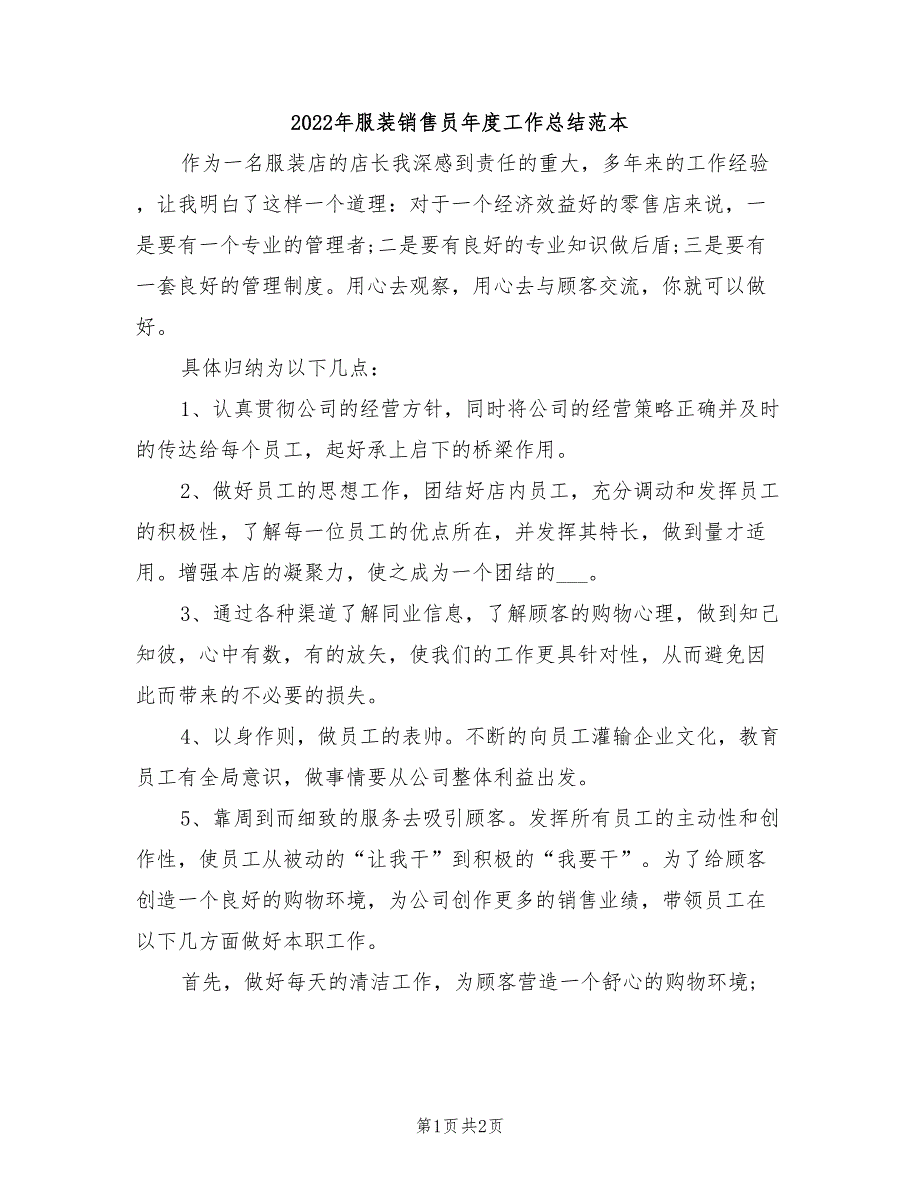 2022年服装销售员年度工作总结范本
作为一名服装店的店长我深感到责任的重大，多年来的工作经验
，让我明白了这样一个道理：对于一个经济效益好的零售店来说，一
是要有一个专业的管理者;二是要有良好的专业知识做后盾;三是要有
一套良好的管理制度。用心去观察，用心去与顾客交流，你就可以做
好。
具体归纳为以下几点：
1、认真贯彻公司的经营方针，同时将公司的经营策略正确并及时
的传达给每个员工，起好承上启下的桥梁作用。
2、做好员工的思想工作，团结好店内员工，充分调动和发挥员工
的积极性，了解每一位员工的优点所在，并发挥其特长，做到量才适
用。增强本店的凝聚力，使之成为一个团结的___。
3、通过各种渠道了解同业信息，了解顾客的购物心理，做到知己
知彼，心中有数，有的放矢，使我们的工作更具针对性，从而避免因
此而带来的不必要的损失。
4、以身作则，做员工的表帅。不断的向员工灌输企业文化，教育
员工有全局意识，做事情要从公司整体利益出发。
5、靠周到而细致的服务去吸引顾客。发挥所有员工的主动性和创
作性，使员工从被动的“让我干”到积极的“我要干”。为了给顾客
创造一个良好的购物环境，为公司创作更多的销售业绩，带领员工在
以下几方面做好本职工作。
首先，做好每天的清洁工作，为顾客营造一个舒心的购物环境;
第1页共2页